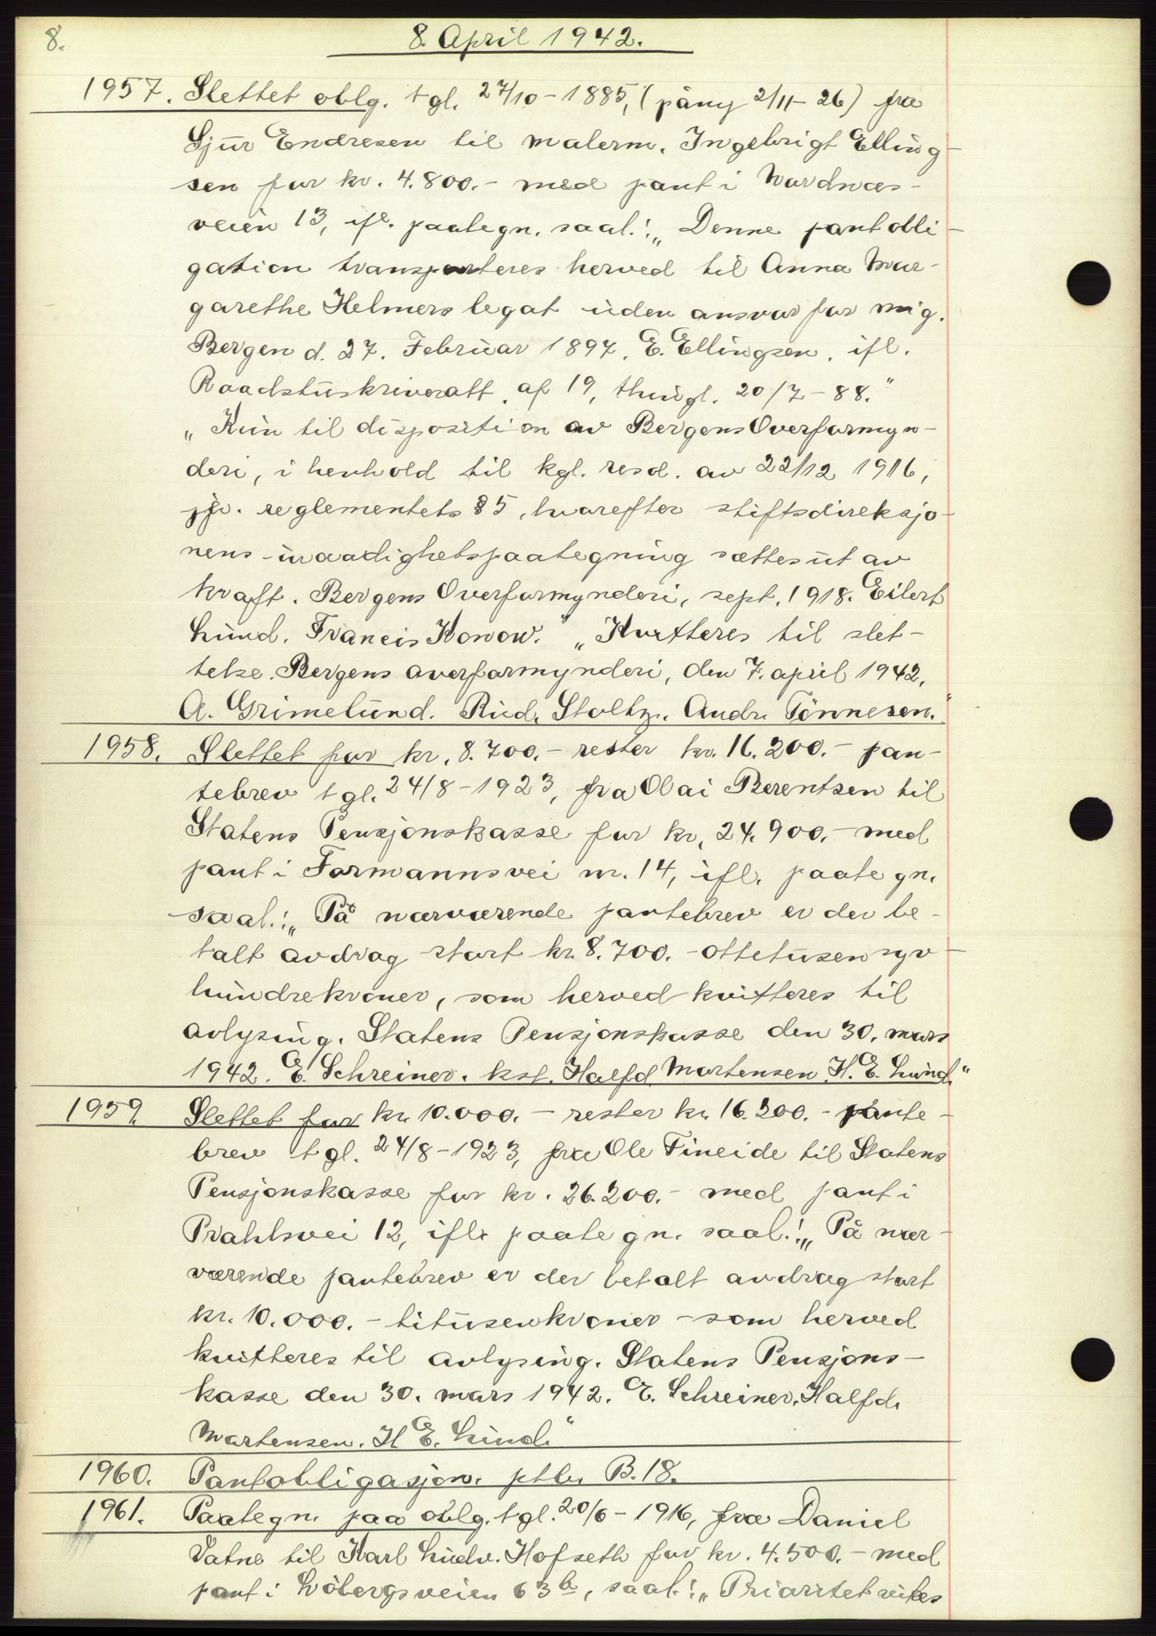 8.
8. April 1942.
1957. Slettet oblg. tgl. 27/10-1885, (påny 2/11-26) fra
Sjur Endresen til malerm. Ingebrigt Elling-
sen for kr. 4.800.- med pant i Nordnæs-
veien 13, ifl. paategn. saal.: „Denne pantobli-
gation transporteres herved til Anna Mar-
garethe Helmers legat uden ansvar for mig.
Bergen d. 27. Februar 1897. E. Ellingsen. ifl.
Raadstuskriveratt. af 19, thingl. 20/7-88."
„Kun til disposition av Bergens Overformyn-
deri, i henhold til kgl. resol. av 22/12 1916,
jfr. reglementets § 5, hvorefter stiftsdireksjo-
nens -paategning sættes ut av
kraft. Bergens Overformynderi, sept. 1918. Eilert
Lund. Francis Konow." „Kvitteres til slet-
telse. Bergens overformynderi, den 7. april 1942.
A. Grimelund. Rud. Stoltz. Andr. Tönnesen."
1958. Slettet for kr. 8.700.- rester kr. 16.200.- pan-
tebrev tgl. 24/8-1923, fra Olai Berentsen til
Statens Pensjonskasse for kr. 24.900.- med
pant i Formannsvei nr. 14, ifl. paategn.
saal.: „På nærværende pantebrev er der be-
talt avdrag stort kr. 8.700.- ottetusensyv-
hundrekroner, som herved kvitteres til
avlysing. Statens Pensjonskasse den 30. mars
1942. E. Schreiner. kst. Halfd. Martensen H. E. Lund."
1959. Slettet for kr. 10.000.- rester kr. 16.200.- pante-
brev tgl. 24/8-1923, fra Ole Fineide til Statens
Pensjonskasse for kr. 26.200.- med pant i
Prahlsvei 12, ifl. paategn. saal.: „På nær-
værende pantebrev er der betalt avdrag stort
kr. 10.000.- titusenkroner - som herved
kvitteres til avlysing. Statens Pensjons-
kasse den 30. mars 1942. E. Schreiner. Halfd.
Martensen. H E. Lund."
1960. Pantobligasjon. B. 18.
1961. Paategn. paa oblg. tgl. 20/6-1916, fra Daniel
Vatne til Karl Ludv. Hofseth for kr. 4.500.- med
pant i Löbergsveien 63b, saal.: „Prioritet vikes